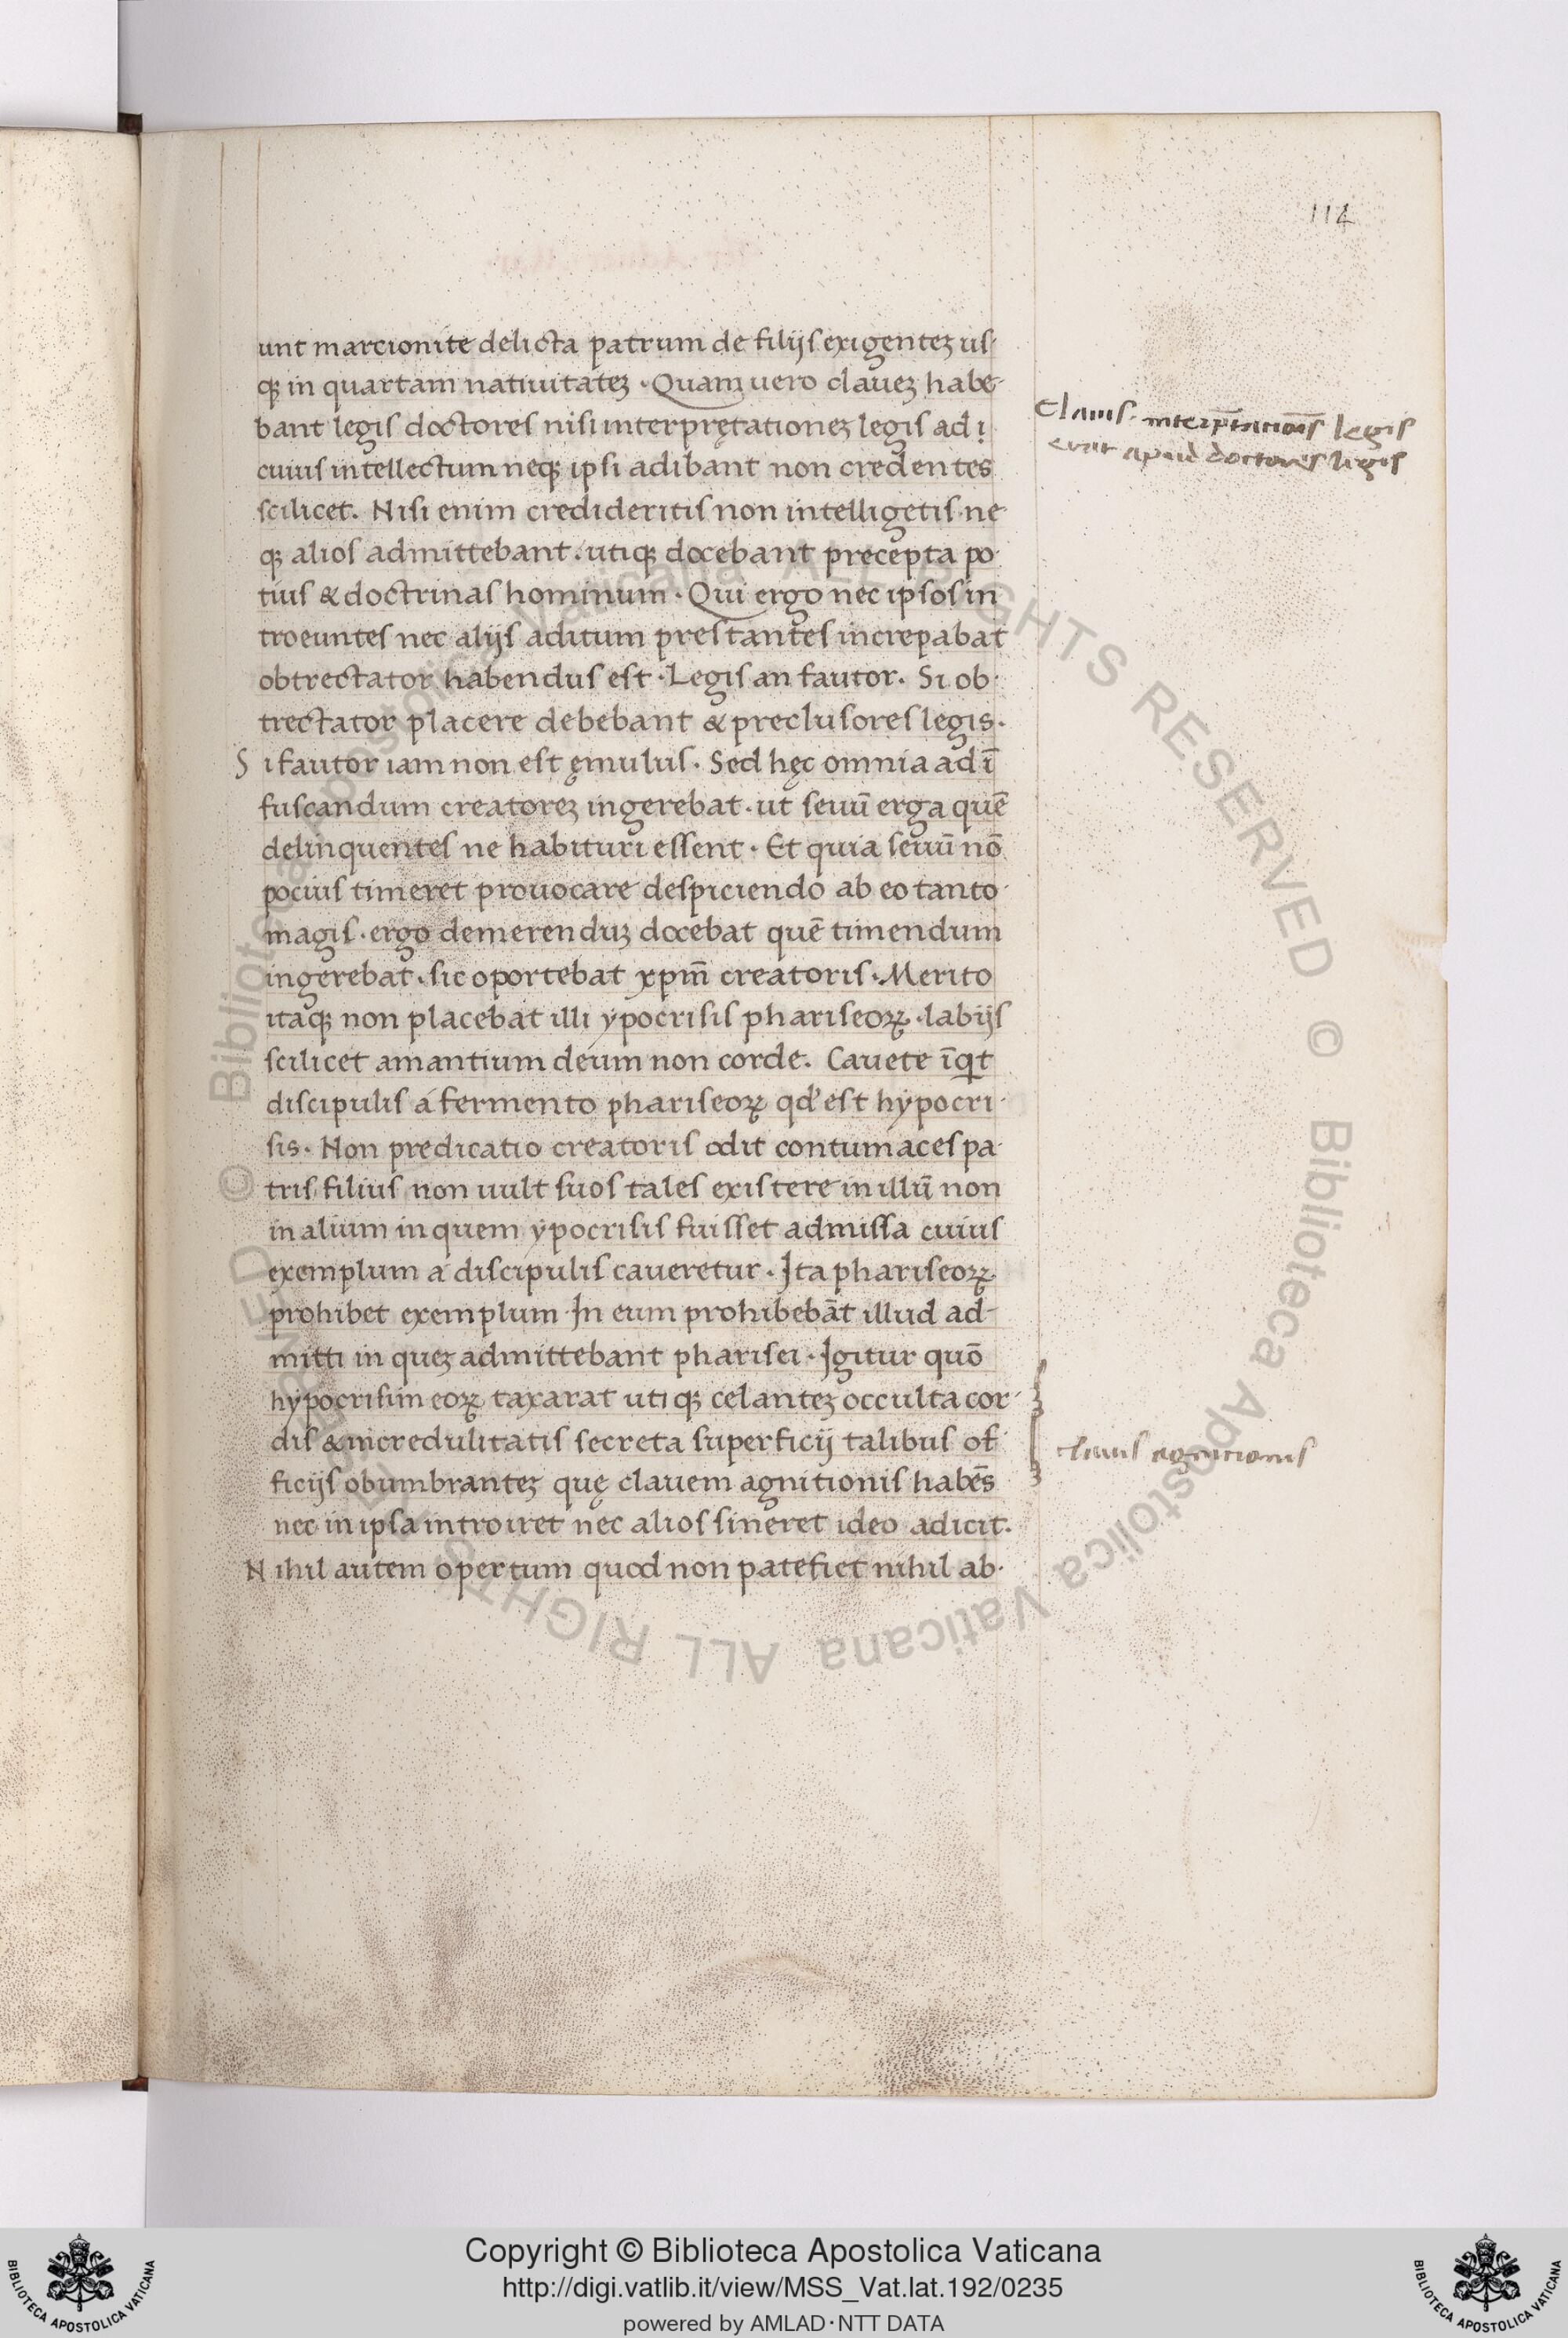 114
unt marcionite delicta patrum de filijs exigenteꝫ us-
qꝫ in quartam natiuitateꝫ · Quam uero claueꝫ habe-
bant legis doctores nisi interpretationeꝫ legis ad i
cuius intellectum neqꝫ ipsi adibant non credentes
scilicet. Nisi enim credideritis non intelligetis · ne
qꝫ alios admittebant · utiqꝫ docebant precepta po
tius & doctrinas hominum · Qui ergo nec ipsos in
troeuntes nec alijs aditum prestantes increpabat
obtrectator habendus est · Legis an fautor. Si ob-
trectator placere debebant & preclusores legis.
Si fautor iam non est ęmulus · Sed hęc omnia ad ī
fuscandum creatoreꝫ ingerebat · ut seuū erga quē
delinquentes ne habituri essent · Et quia seuū nō
pocius timeret prouocare despiciendo ab eo tanto
magis · ergo demerenduꝫ docebat quē timendum
ingerebat · sic oportebat xpm̄ creatoris · Merito
itaqꝫ non placebat illi ypocrisis phariseoꝝ · labijs
scilicet amantium deum non corde. Cauete īqt
discipulis á fermento phariseoꝝ qd' est hypocri
sis. Non predicatio creatoris odit contumaces pa
tris filius non uult suos tales existere in illū non
in alium in quem ypocrisis fuisset admissa cuius
exemplum á discipulis caueretur. Ita phariseoꝝ
prohibet exemplum · In eum prohibebāt illud ad-
mitti in queꝫ admittebant pharisei · Igitur quō
hypocrisim eoꝝ taxarat utiqꝫ celanteꝫ occulta cor-
dis & incredulitatis secreta superficij talibus of
ficijs obumbranteꝫ quę clauem agnitionis habēs
nec in ipsa introiret nec alios sineret ideo adicit.
Nihil autem opertum quod non patefiet nihil ab-
Clauis · interp̄tationis legis
erat apud doctores legis
clauis agnitionis
© Biblioteca Apostolica Vaticana ALL RIGHTS RESERVED © Biblioteca Apostolica Vaticana ALL RIGHTS RESERVED
Copyright © Biblioteca Apostolica Vaticana
http://digi.vatlib.it/view/MSS_Vat.lat.192/0235
powered by AMLAD·NTT DATA
BIBLIOTECA APOSTOLICA VATICANA
BIBLIOTECA APOSTOLICA VATICANA